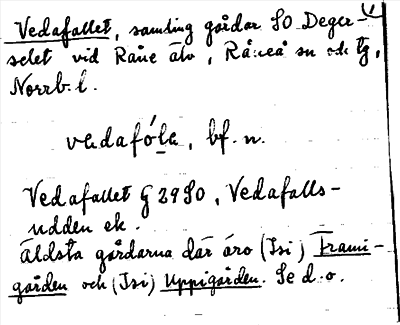 Vedafallet, samling gårdar SO Deger-
selet vid Råne älv, Råneå sn och tg,
Norrb. l.
vedafólę, bf. n.
Vedafallet G 29 SO, Vedafalls-
udden ek.
Äldsta gårdarna där äro (Isi) Frami-
gården och (Isi) Uppigården. Se d. o.